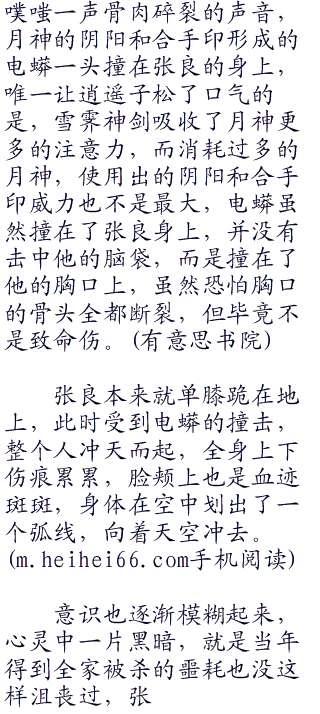 噗嗤一声骨肉碎裂的声音，
月神的阴阳和合手印形成的
电蟒一头撞在张良的身上，
唯一让逍遥子松了口气的
是，雪霁神剑吸收了月神更
多的注意力，而消耗过多的
月神，使用出的阴阳和合手
印威力也不是最大，电蟒虽
然撞在了张良身上，并没有
击中他的脑袋，而是撞在了
他的胸口上，虽然恐怕胸口
的骨头全都断裂，但毕竟不
是致命伤。(有意思书院)
张良本来就单膝跪在地
上，此时受到电蟒的撞击，
整个人冲天而起，全身上下
伤痕累累，脸颊上也是血迹
斑斑，身体在空中划出了一
个弧线，向着天空冲去。
(m.heihei66.com手机阅读)
意识也逐渐模糊起来，
心灵中一片黑暗，就是当年
得到全家被杀的噩耗也没这
样沮丧过，张